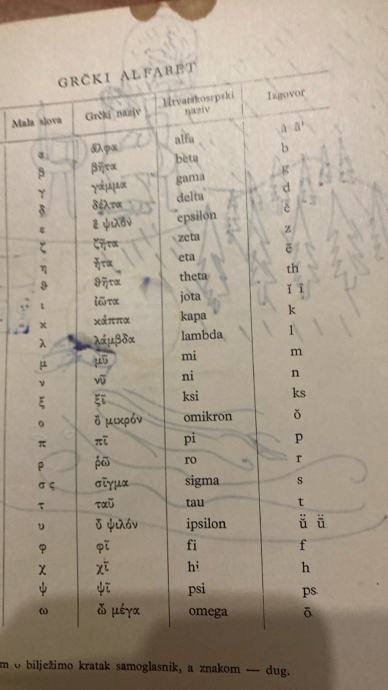 GRČKI ALFABET
Mala slova Grčki naziv Hrvatskosrpski naziv Izgovor
α ἄλφα alfa ă ā
β βῆτα beta b
γ γάμμα gama g
δ δέλτα delta d
ε ἒ ψιλόν epsilon ĕ
ζ ζῆτα zeta z
η ἦτα eta ē
ϑ ϑῆτα theta th
ι ἰῶτα jota ĭ ī
κ κάππα kapa k
λ λάμβδα lambda l
μ μῦ mi m
ν νῦ ni n
ξ ξῖ ksi ks
ο ὂ μικρόν omikron ŏ
π πῖ pi p
ρ ῥῶ ro r
σ ς σῖγμα sigma s
τ ταῦ tau t
υ ὒ ψιλόν ipsilon ü̆ ǖ
φ φῖ fi f
χ χῖ hi h
ψ ψῖ psi ps
ω ὦ μέγα omega ō
m ᴗ bilježimo kratak samoglasnik, a znakom — dug.